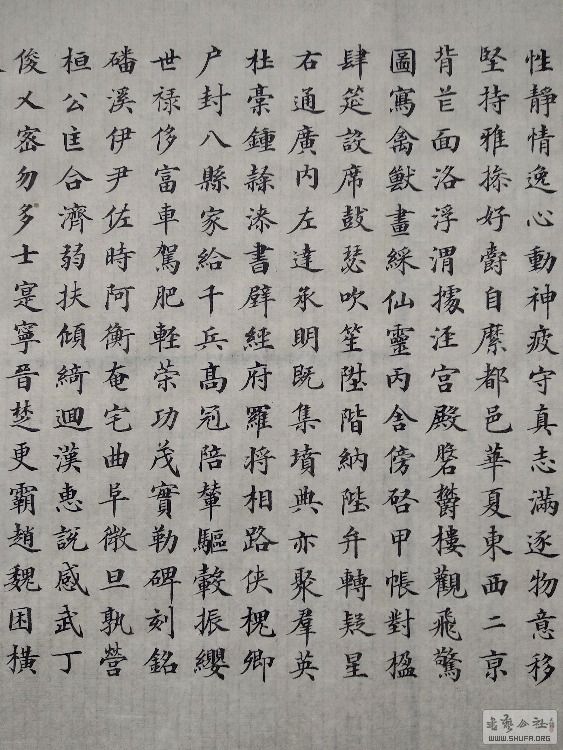 性靜情逸心動神疲守真志滿逐物意移
堅持雅操好爵自縻都邑華夏東西二京
背芒面洛浮渭據涇宮殿磐鬱樓觀飛驚
圖寫禽獸畫綵仙靈丙舍傍啓甲帳對楹
肆筵設席鼓瑟吹笙陞階納陛弁轉疑星
右通廣内左達承明既集墳典亦聚羣英
杜稾鍾隸漆書壁經府羅將相路俠槐卿
户封八縣家給千兵高冠陪輦驅轂振纓
世禄侈富車駕肥輕策功茂實勒碑刻銘
磻溪伊尹佐時阿衡奄宅曲阜微旦孰營
桓公匡合濟弱扶傾綺迴漢惠說感武丁
俊乂密勿多士寔寧晉楚更霸趙魏困橫
书艺公社
WWW.SHUFA.ORG